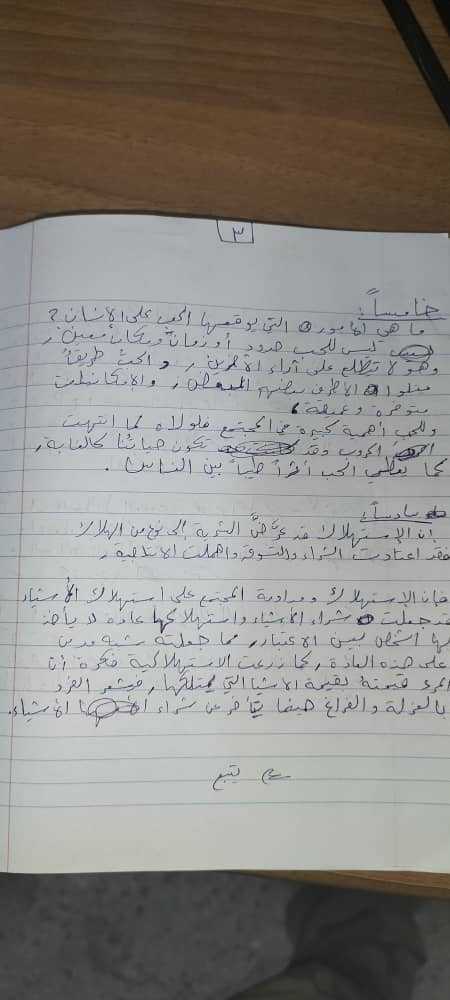 ٣
خامساً:
ما هي الأمور التي يوقعها الحب على الإنسان؟
ليس للحب حدود أو زمان ومكان معين،
وهو لا يتطلع على آراء الآخرين، والحب طريقاً
الأطراف ببعضهم البعض، والإمكانيات
متوفرة وعميقة،
وللحب أهمية كبيرة في المجتمع فلولاه لما انتهت
الحروب وقد تكون حياتنا كالغابة،
كما يعطي الحب أثراً طيباً بين الناس.
سادساً:
إن الإستهلاك قد عرَّضَ البشرية إلى نوع من الهلاك
فقد اعتادت الشراء والتسوق وأهملت الانتاجية،
فإن الإستهلاك ومداومة المجتمع على استهلاك الأشياء
قد جعلت شراء الأشياء واستهلاكها عادة لا يأخذ
لها الشخص بعين الاعتبار، مما جعلته شبه مدمن
على هذه العادة، كما زرعت الاستهلاكية فكرة أن
المرء قيمته بقيمة الاشيا التي يمتلكها، فيشعر الفرد
بالعزلة والفراغ حينما يتأخر عن شراء الأشياء.
يتبع